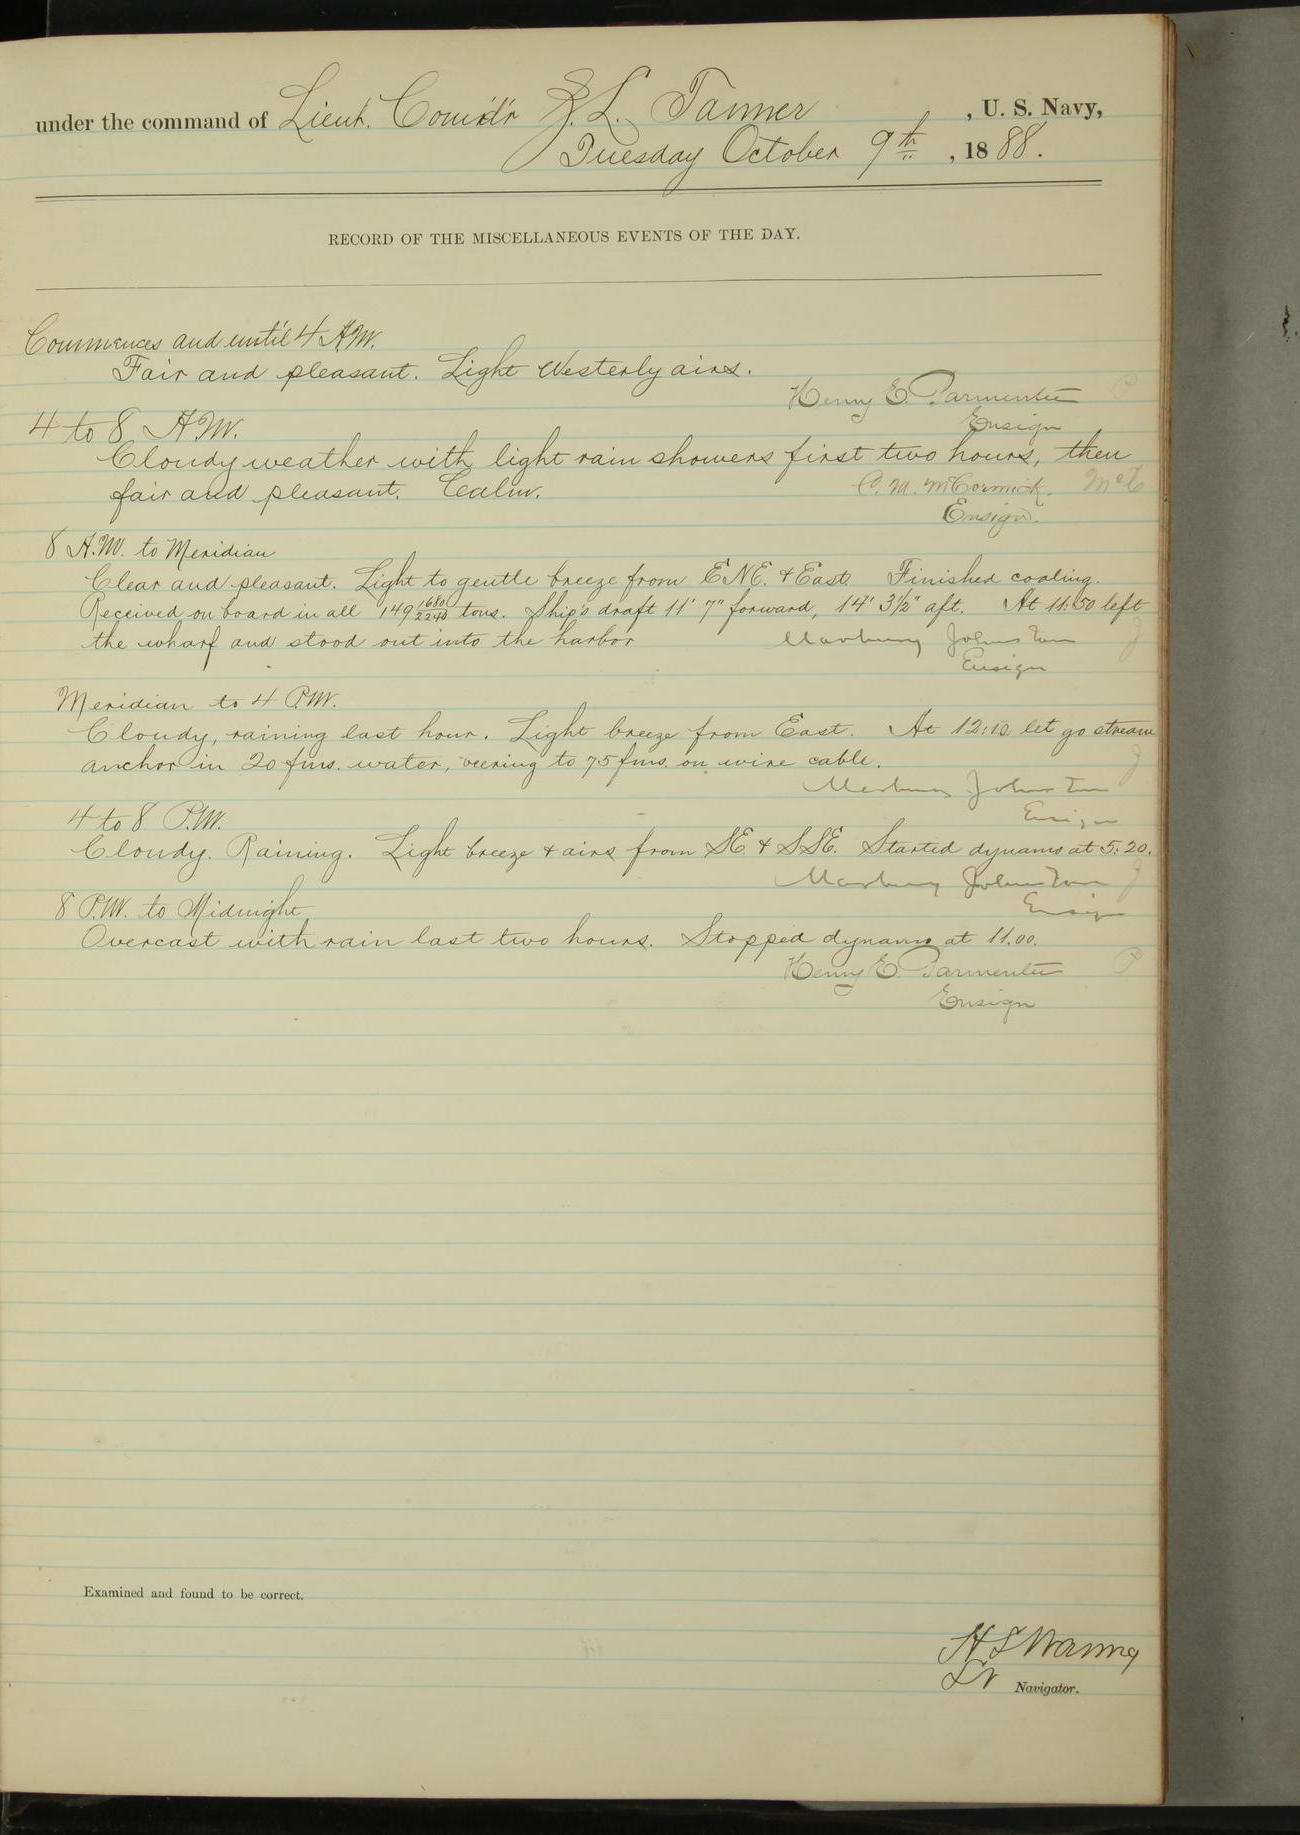 under the command of Lieut. Comd'r Z. L. Tanner, U. S. Navy,
Tuesday October 9th, 1888.
RECORD OF THE MISCELLANEOUS EVENTS OF THE DAY.
Commences and until 4 A.M.
Fair and pleasant. Light Westerly airs.
Henry E. Parmenter P
Ensign
4 to 8 A.M.
Cloudy weather with light rain showers first two hours, then
fair and pleasant. Calm.
C. M. McCormick. McC
Ensign.
8 A.M. to Meridian
Clear and pleasant. Light to gentle breeze from ENE. & East. Finished coaling.
Received on board in all 149 1680/2240 tons. Ship's draft 11' 7" forward, 14' 3½" aft. At 11:50 left
the wharf and stood out into the harbor
Marbury Johnston J
Ensign
Meridian to 4 P.M.
Cloudy, raining last hour. Light breeze from East. At 12:10 let go stream
anchor in 20 fms. water, veering to 75 fms. on wire cable. J
Marbury Johnston
Ensign
4 to 8 P.M.
Cloudy. Raining. Light breeze & airs from SE & SSE. Started dynamo at 5:20.
Marbury Johnston J
Ensign
8 P.M. to Midnight
Overcast with rain last two hours. Stopped dynamo at 11.00.
Henry E. Parmenter P
Ensign
Examined and found to be correct.
H S Waring
Lt Navigator.